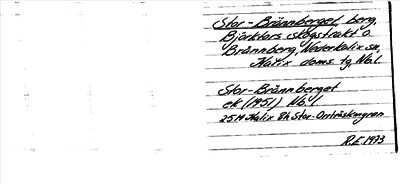 Stor-Brännberget, berg,
Björkfors skogstrakt o.
Brännberg, Nederkalix sn,
Kalix doms. tg, Nb.l.
Stor-Brännberget
ek (1951) Nb.l
25M Kalix 8h Stor-Onträskmyran
R.E. 1973